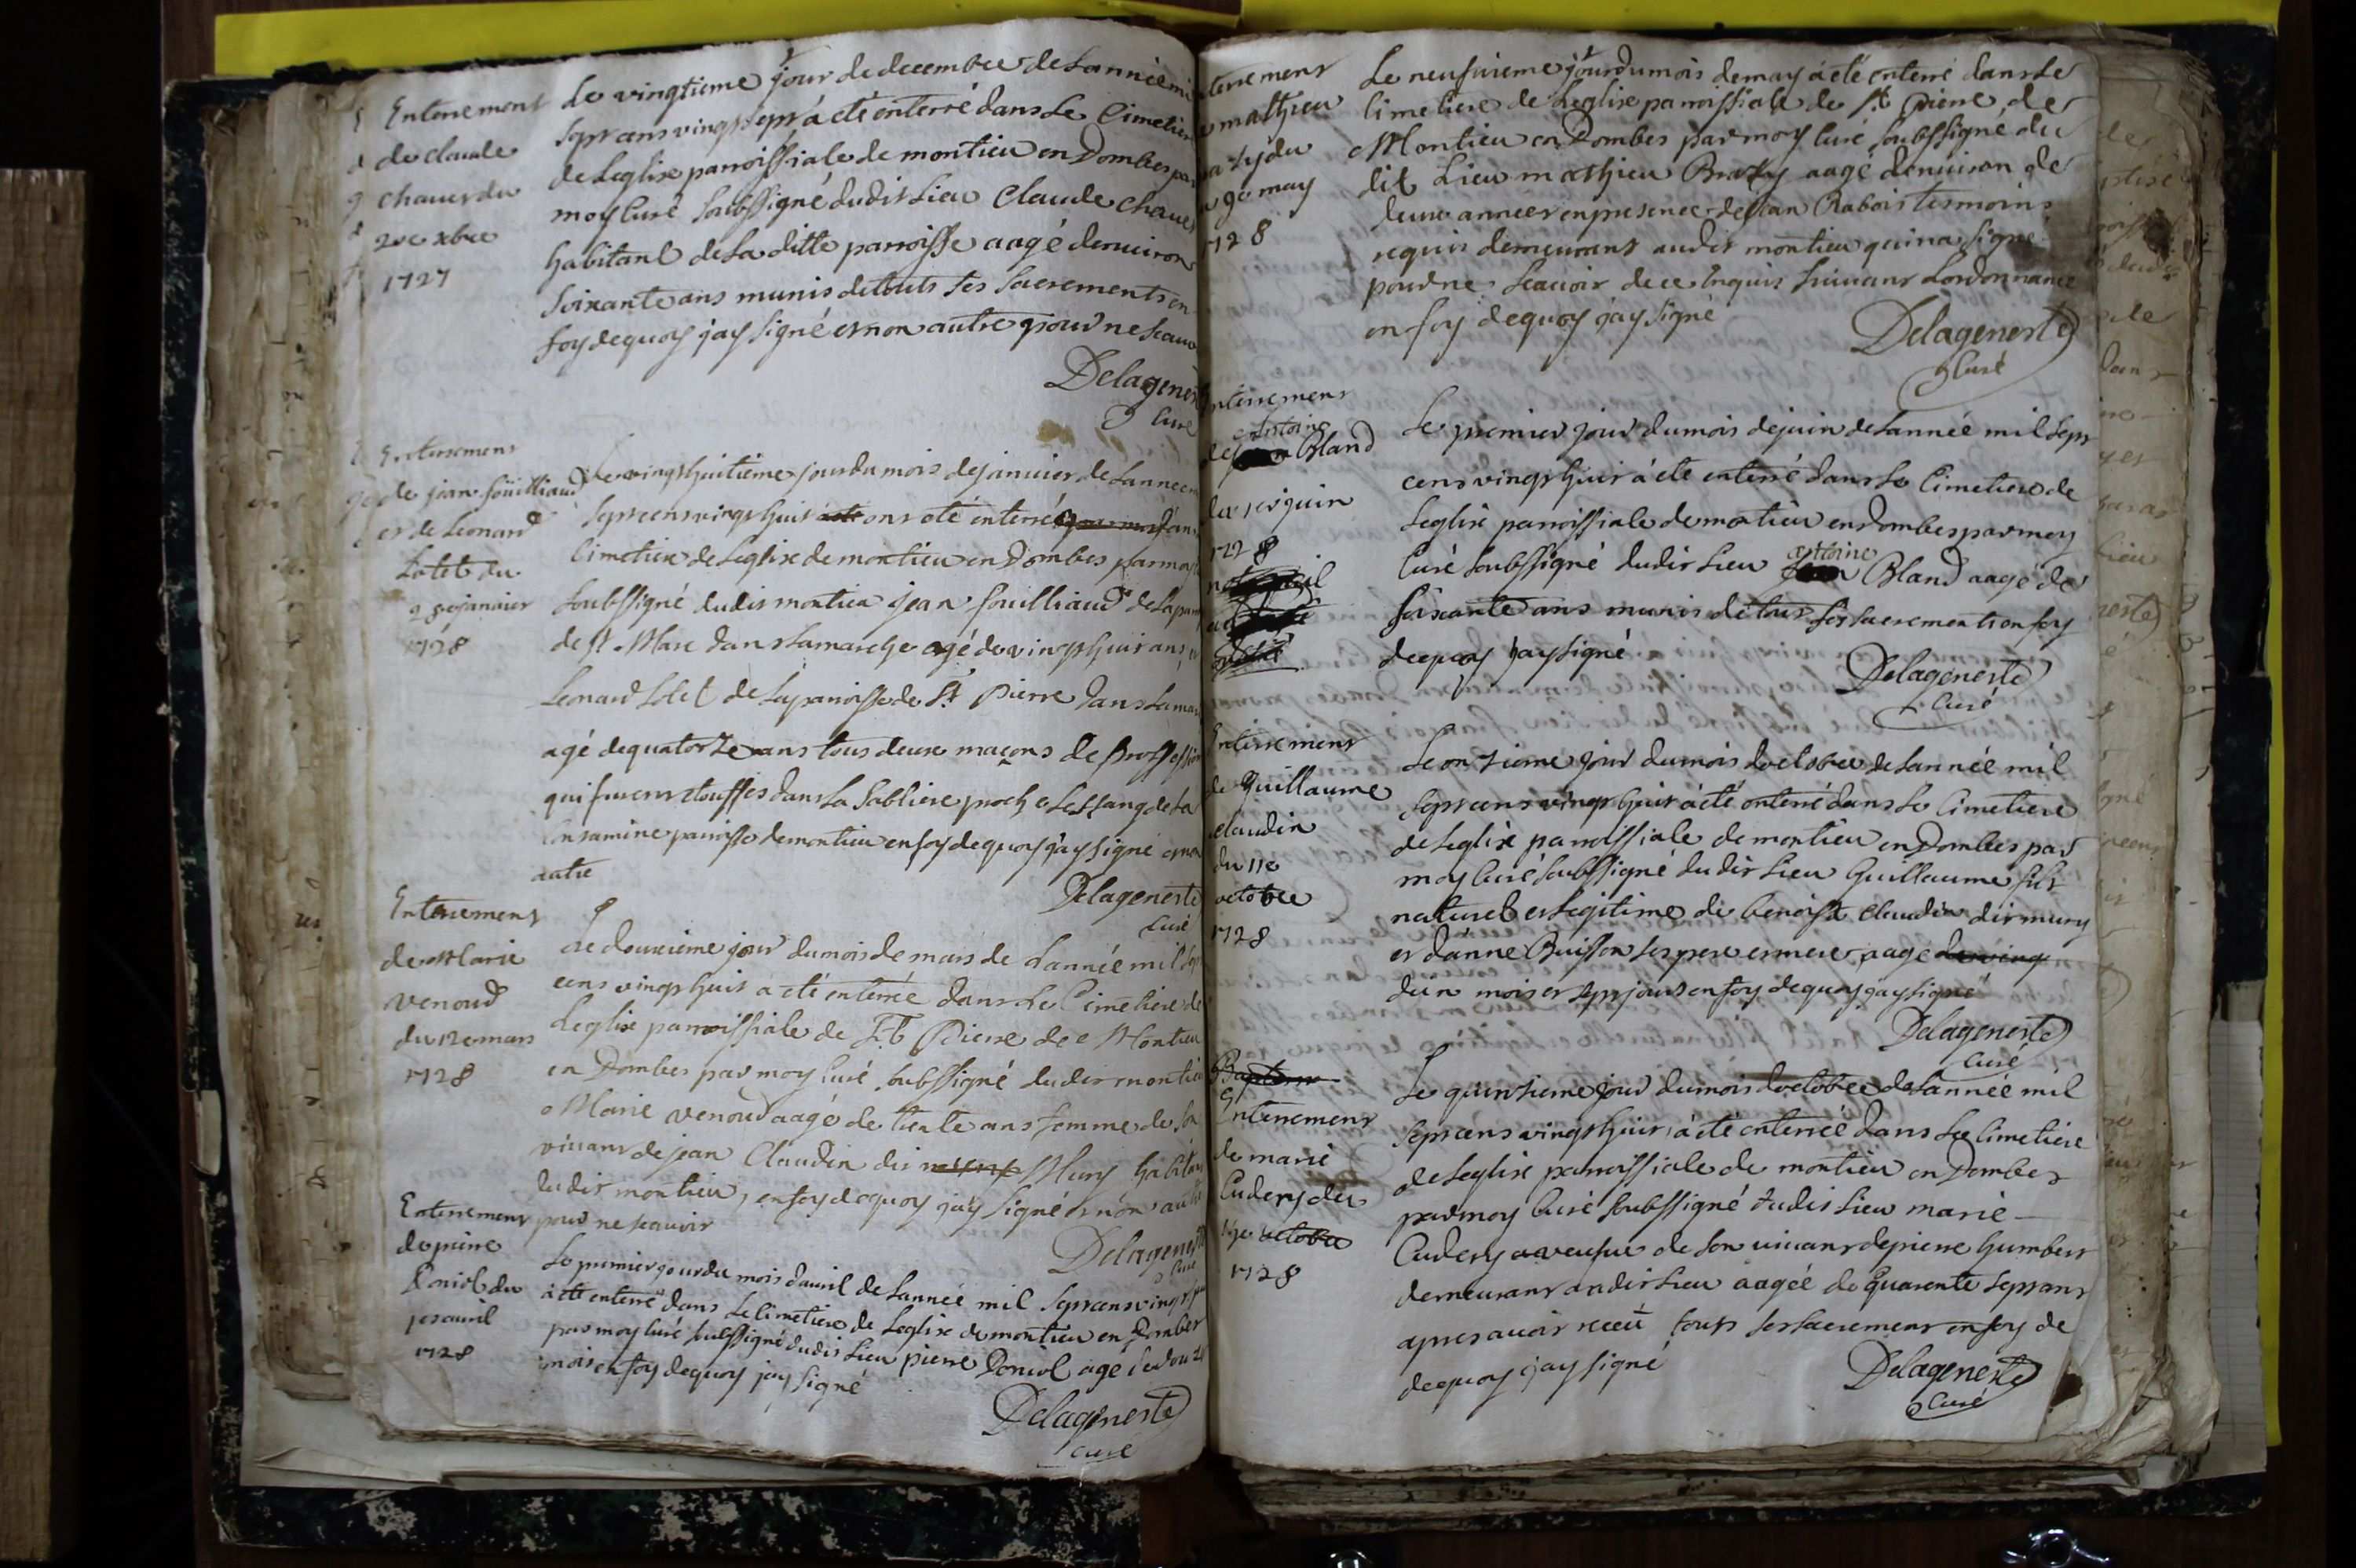 Enterrement
de claude
chaner du
20e xbre
1727
Le vingtieme jour de decembre de Lannée mi
sept cens vingt sept á eté enterré dans Le Cimetiere
de Leglise parroissiale de montieu en Dombes par
moy Curé soubssigné dudit Lieu Claude chaner
habitant de La ditte parroisse aagé denuiron
soixante ans munis de touts ses sacrements en
foy dequoy jay signé et non autre pour ne scauo
Delagenes
Curé
Enterrement
de jean foüilliaud
et de Leonard
Lolet du
28e januier
1728
Le vingt huitième jour du mois de januier de Lannee
sept cens vingt huit ont eté enterré dans
Cimetiere de Leglise de montieu en Dombes par moy
soubssigné dudit montieu jean fouilliaud de La par
de st Marc dans La marche agé de vingt huit ans, e
Leonard Lolet de La parroisse de St Pierre dans La mar
agé de quatorze ans tous deux maçons de proffession
qui furent etouffés dans La sabliere proche Lestang de La
parroisse de montieu en foy de quoy j'ay signé et non
autre
Delageneste
Curé
Enterrement
de Marie
venoud
du 12e mars
1728
Le douzieme jour du mois de mars de Lannée mil sep
cens vingt huit a eté enterrée dans Le Cimetiere de
Leglise parroissiale de St Pierre de Montieu
en Dombes par moy Curé soubssigné dudit montieu
Marie venoud aagé de trente ans femme de son
viuant de jean Claudin dit Mury habitan
dudit montieu, en foy de quoy j'ay signé et non autre
pour ne scauoir
Delagenes
Curé
Enterrement
de pierre
Doniol du
1er auril
1728
Le premier jour du mois dauril de Lannée mil sept cens vingt huit
á eté enterré dans Le Cimetiere de Leglise de montieu en Dombes
par moy Curé soubssigné dudit Lieu pierre Doniol agé de douze
mois en foy dequoy jay signé
Delageneste
Curé
terrement
mathieu
du
9e may
1728
Le neufuieme jour du mois de may á eté enterré dans Le
Cimetiere de Leglise parroissiale de St Pierre de
Montieu en Dombes par moy Curé soubssigné du
dit Lieu mathieu aagé denuiron de
deux années en presence de jean Rabois tesmoins
requis demeurant audit montieu qui na signé
pour ne scauoir de ce Enquis suiuant Lordonnance
en foy dequoy j'ay signé
Delageneste
Curé
nterrement
Antoine
de Bland
du 1er juin
1728
Le premier jour du mois de juin de Lannée mil sept
cens vingt huit á eté enterré dans Le Cimetiere de
Leglise parroissiale de montieu en Dombes par moy
antoine
Curé soubssigné dudit Lieu Bland aagé de
soixante ans munis de tous ses sacrements en foy
dequoy j'ay signé
Delageneste
Curé
Enterrement
de Guillaume
claudin
du 11e
octobre
1728
Le onzieme jour du mois doctobre de Lannée mil
sept cens vingt huit á eté enterré dans Le Cimetiere
de Leglise parroissiale de montieu en Dombes par
moy Curé soubssigné dudit Lieu Guillaume fils
naturel et Legitime de benoist claudin dit mury
et dánne Buisson ses pere et mere, aagé de vingt
dun mois et sept jours en foy de quoy j'ay signé
Delageneste
Curé
Bapteme
Enterrement
de marie
Cudery du
15e octobre
1728
Le quinzieme jour du mois doctobre de Lannée mil
sept cens vingt huit, á eté enterrée dans Le Cimetiere
de Leglise parroissiale de montieu en Dombes
par moy Curé soubssigné dudit Lieu marie
Cudery veufue de son viuant de pierre humbert
demeurant audit Lieu aagéé de quarente sept ans
apres auoir receü touts ses sacrement en foy de
dequoy jay signé
Delageneste
Curé